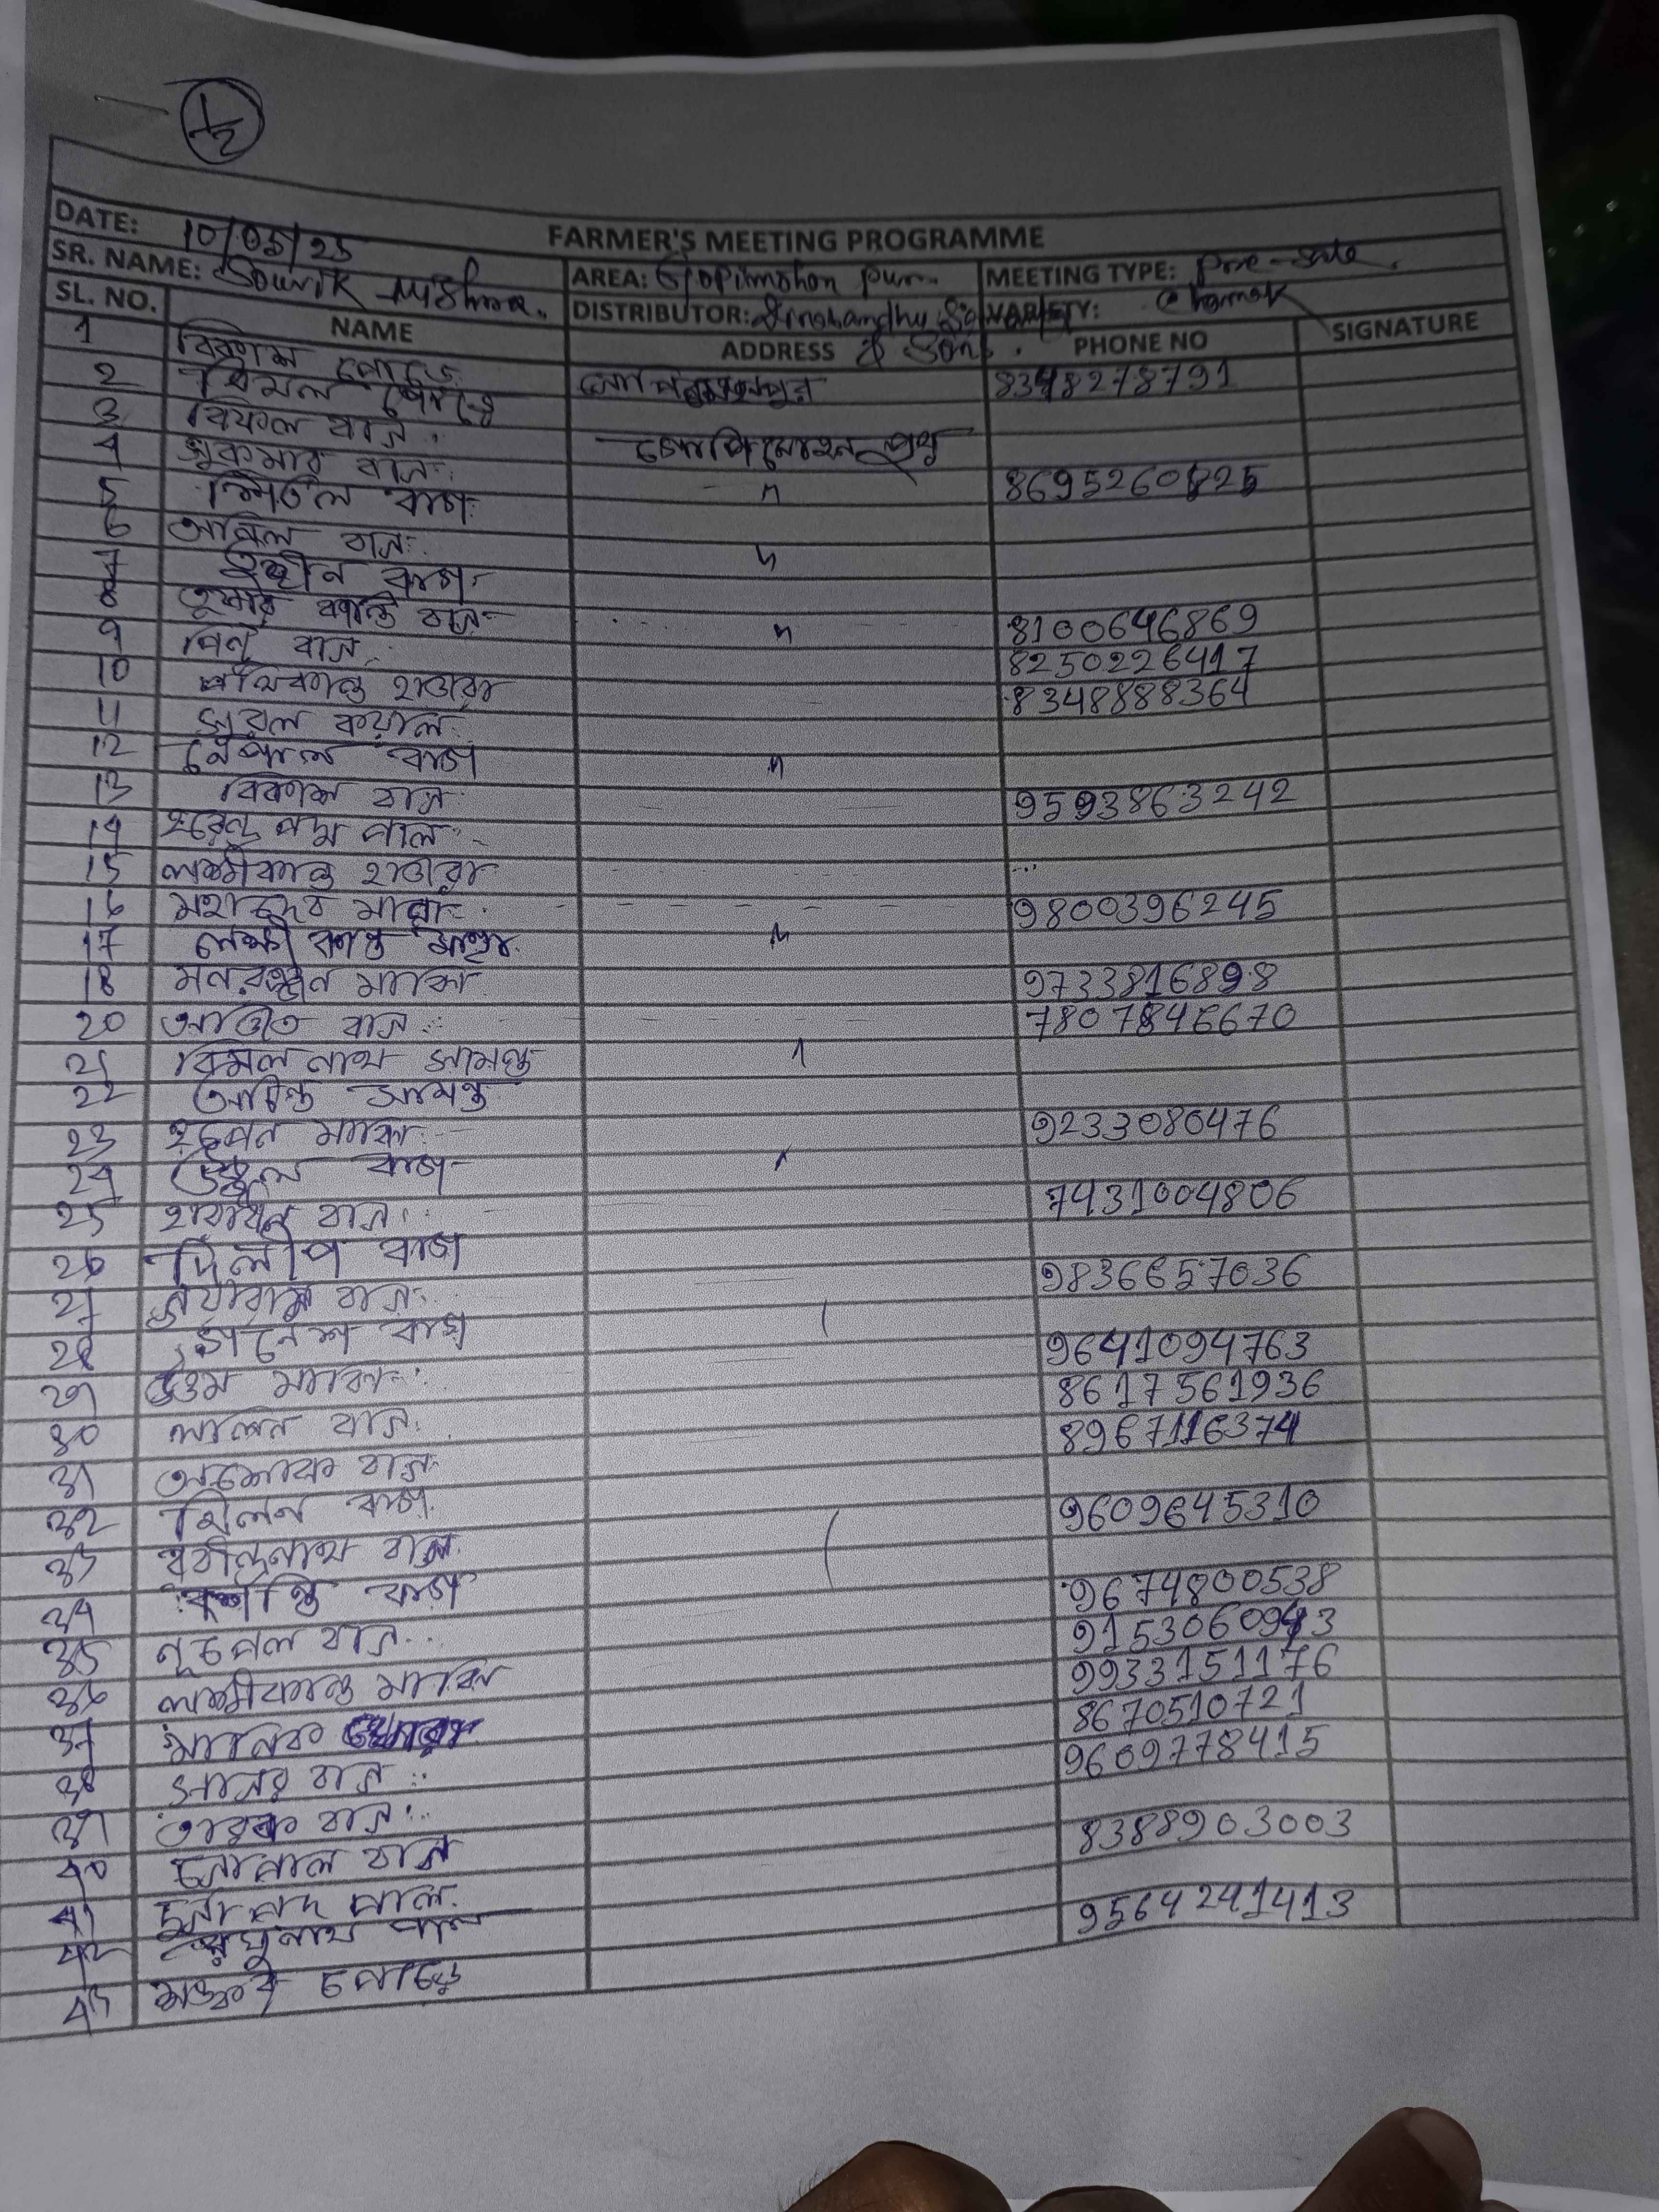 1/2
FARMER'S MEETING PROGRAMME
DATE: 10/05/25
SR. NAME: Souvik Mishra. AREA: Gopimohon pur. MEETING TYPE: pre-sale.
DISTRIBUTOR: Dinabandhu & Sons. VARIETY: Chamak
SL. NO. NAME ADDRESS PHONE NO SIGNATURE
1 বিকাশ পোড়ে 8348278791
2 বিমল পোড়ে
3 বিফল বাগ গোপিমোহনপুর
4 সুকুমার বাগ 8695260825
5 শিতল বাগ "
6 অনিল বাগ
7 বাগ "
8 তুষার কান্তি বাগ 8100646869
9 পিন্টু বাগ 8250226417
10 হাজরা 8348888364
11 সুবল কয়াল
12 নেপাল বাগ "
13 বিকাশ বাগ 9593863242
14 পাল
15 লক্ষ্মীকান্ত হাজরা
16 মহাদেব মান্না 9800396245
17 লক্ষী কান্ত "
18 মনরঞ্জন মাঝি 9733816898
20 অজিত বাগ 7807846670
21 বিমল নাথ সামন্ত
22 অচিন্ত সামন্ত
23 মাঝি 9233080476
24 বাগ
25 হারাধন বাগ 7431004806
26 দিলীপ বাগ
27 দয়ারাম বাগ 9836657036
28 গনেশ বাগ
29 উত্তম মাঝি 9641094763
30 বাগ 8617561936
31 অশোক বাগ 8967116374
32 মিলন বাগ
33 রবীন্দ্রনাথ বাগ 9609645310
34 বাগ
35 নৃপেল বাগ 9674800538
36 লক্ষ্মীকান্ত মাঝি 9153060943
37 মানিক 9933151176
38 সাগর বাগ 8670510721
39 তারক বাগ 9609778415
40 গোপাল বাগ
41 দুর্গা পদ পাল 8388903003
42 রঘুনাথ পাল
43 শঙ্কর পোড়ে 9564241413